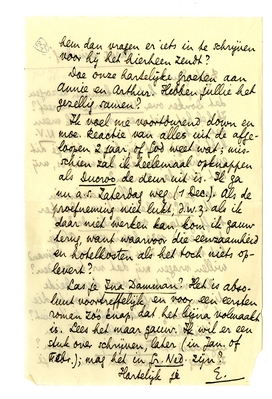 hem dan vragen er iets in te schrijven
voor hij het hierheen zendt?
Doe onze hartelijke groeten aan
Annie en Arthur. Hebben jullie het
gezellig samen?
Ik voel me voortdurend down en
moe. Reactie van alles uit de afge-
loopen 2 jaar, of God weet wat; mis-
schien zal ik heelemaal opknappen
als Ducroo de deur uit is. Ik ga
nu a.s. Zaterdag weg (1 Dec.). Als de
proefneming niet lukt, d.w.z. als ik
daar niet werken kan, kom ik gauw
terug, want waarvoor die eenzaamheid
en hotelkosten als het toch niets op-
levert?
Las je Ina Damman? Het is abso-
luut voortreffelijk, en voor een eersten
roman zóó knap, dat het bijna volmaakt
is. Lees het maar gauw. Ik wil er een
stuk over schrijven, later (in Jan. of
Febr.); mag het in Gr. Ned. zijn?
Hartelijk je E.